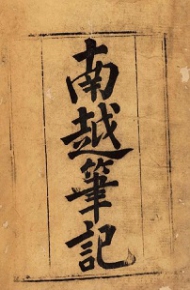 南越筆記